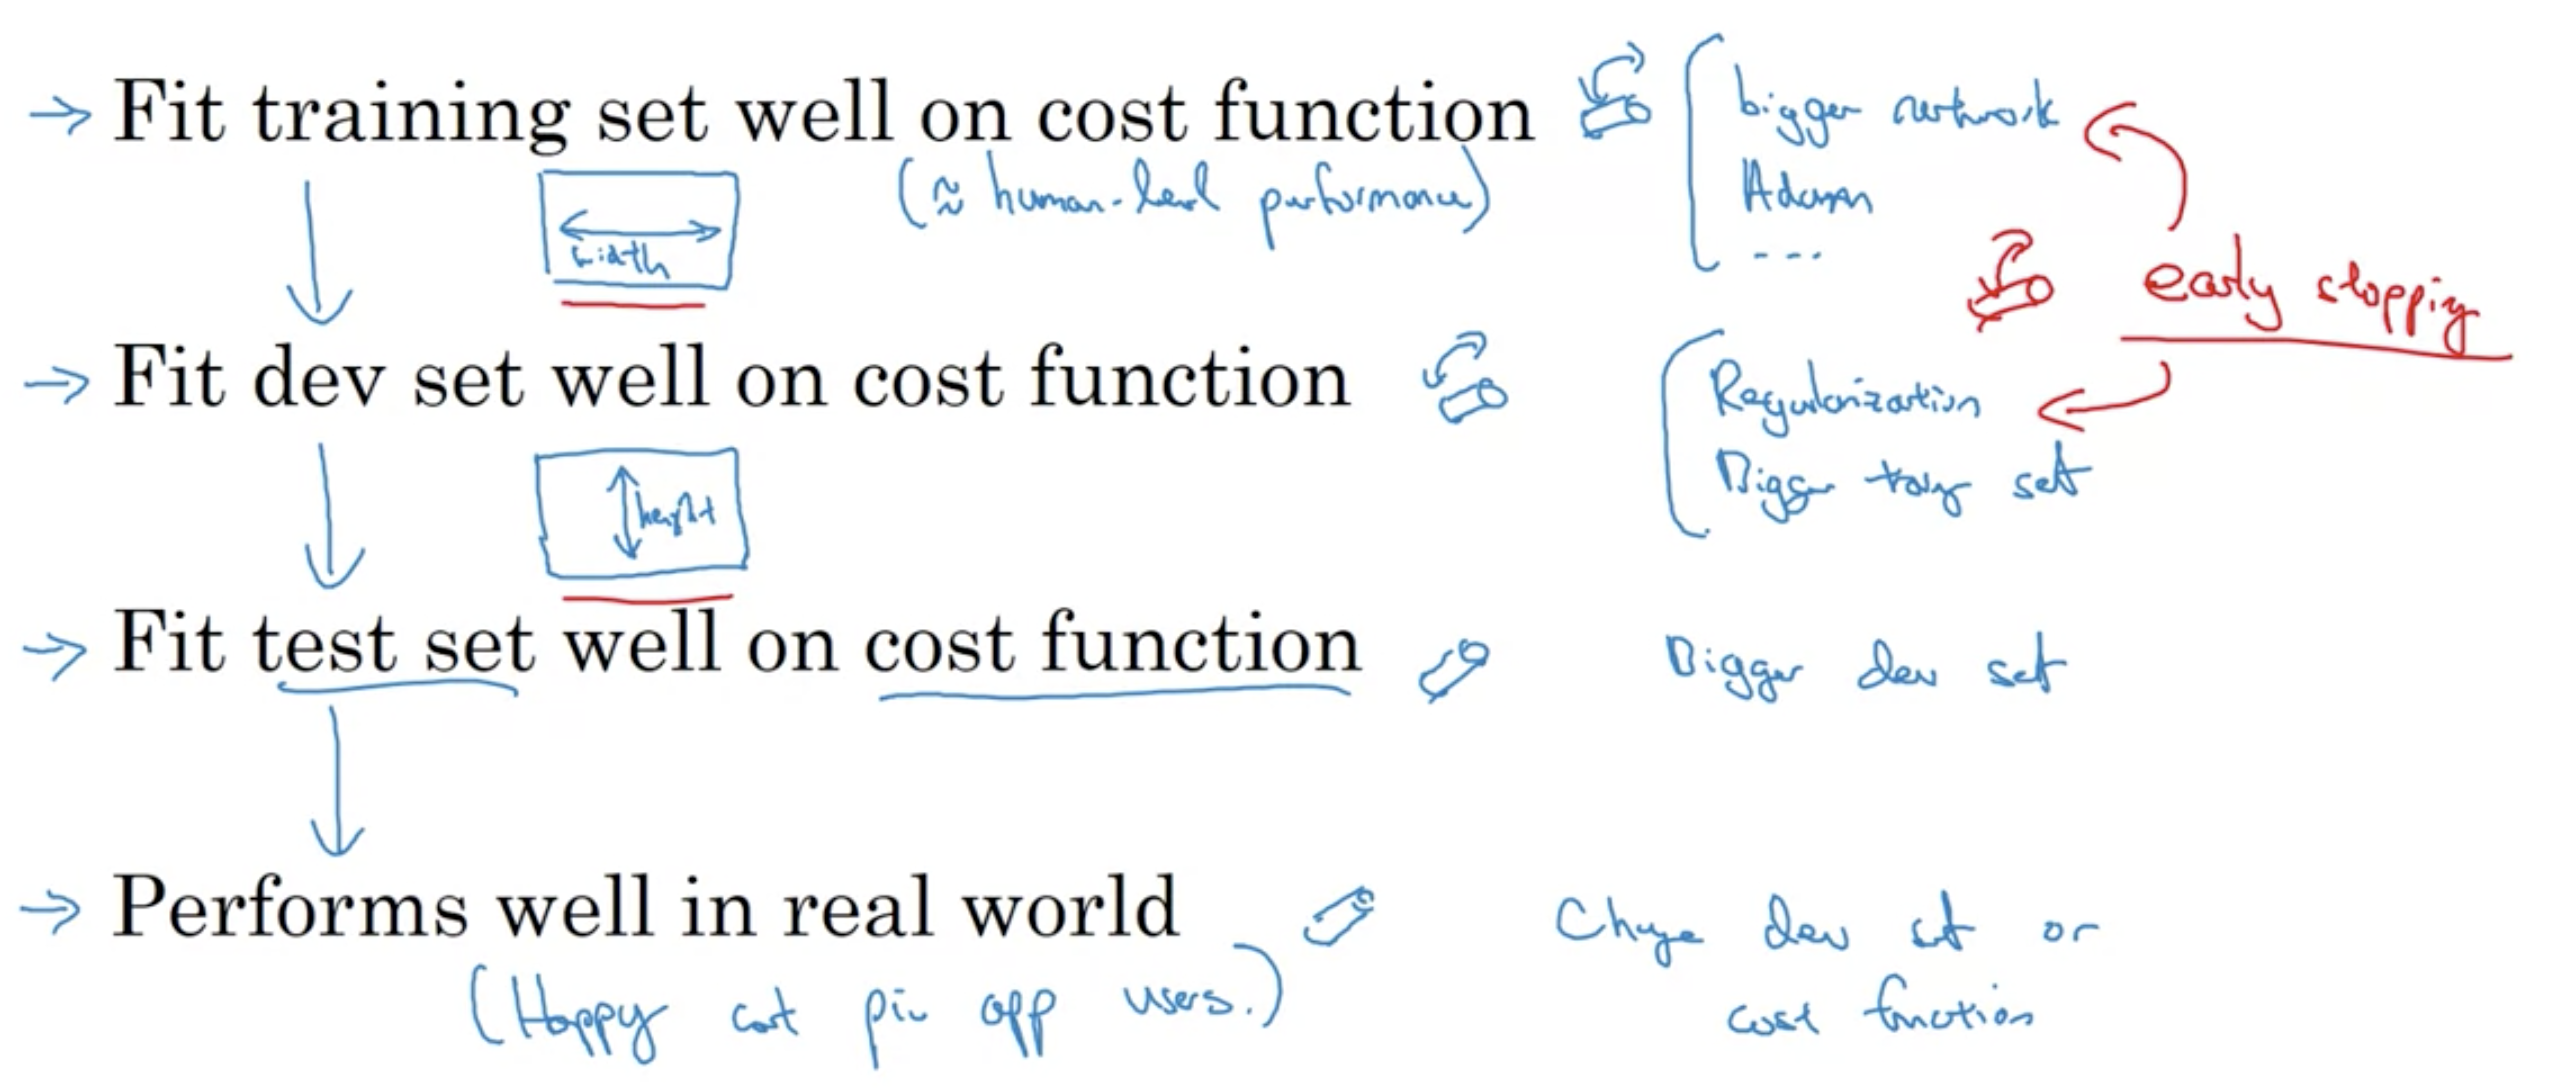 → Fit training set well on cost function
(≈ human-level performance)
bigger network
Adam
...
width
early stopping
→ Fit dev set well on cost function
Regularization
Bigger training set
height
→ Fit test set well on cost function
Bigger dev set
→ Performs well in real world
(Happy cat pic app users.)
Change dev set or
cost function